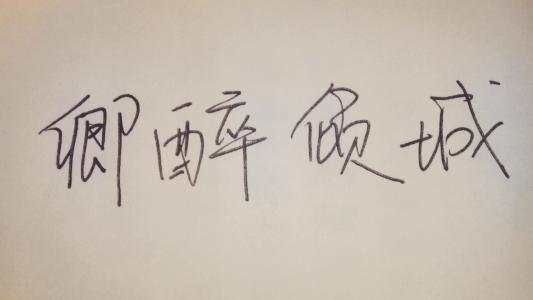 卿醉倾城